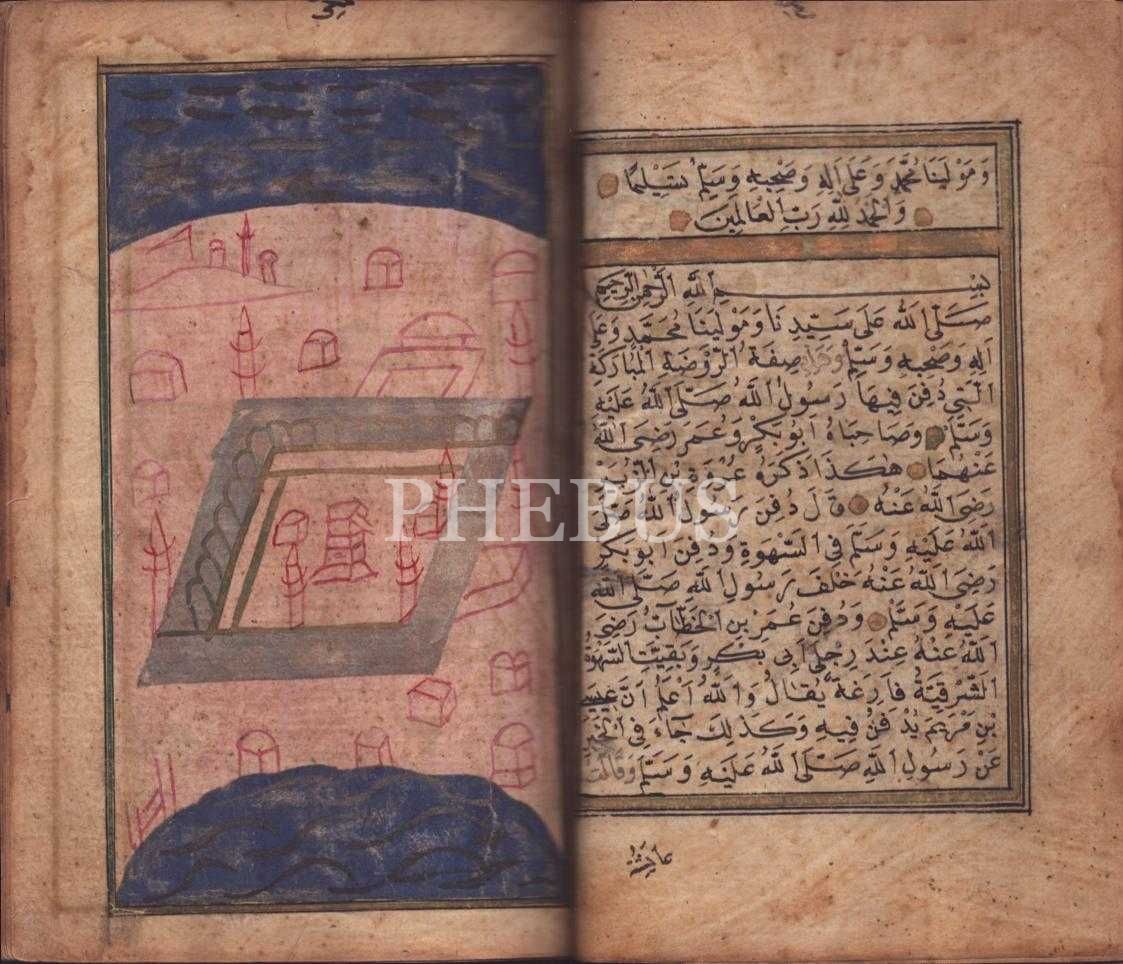 وَمَوْلَينَا مُحَمَّدٍ وَعَلَى اٰلِهِ وَصَحْبِهِ وَسَلِّمْ تَسْلِيمًا
وَالْحَمْدُ لِلّٰهِ رَبِّ الْعَالَمِينَ
بِسْمِ اللّٰهِ الرَّحْمٰنِ الرَّحِيمِ
صَلَّى اللّٰهُ عَلَى سَيِّدِنَا وَمَوْلَينَا مُحَمَّدٍ وَعَلَى
اٰلِهِ وَصَحْبِهِ وَسَلَّمَ صِفَةُ الرَّوْضَةِ الْمُبَارَكَةِ
الَّتِي دُفِنَ فِيهَا رَسُولُ اللّٰهِ صَلَّى اللّٰهُ عَلَيْهِ
وَسَلَّمَ وَصَاحِبَاهُ اَبُو بَكْرٍ وَعُمَرُ رَضِيَ اللّٰهُ
عَنْهُمَا هٰكَذَا ذَكَرَهُ عُرْوَةُ بْنُ الزُّبَيْرِ
رَضِيَ اللّٰهُ عَنْهُ قَالَ دُفِنَ رَسُولُ اللّٰهِ صَلَّى
اللّٰهُ عَلَيْهِ وَسَلَّمَ فِي السَّهْوَةِ وَدُفِنَ اَبُو بَكْرٍ
رَضِيَ اللّٰهُ عَنْهُ خَلْفَ رَسُولِ اللّٰهِ صَلَّى اللّٰهُ
عَلَيْهِ وَسَلَّمَ وَدُفِنَ عُمَرُ بْنُ الْخَطَّابِ رَضِيَ
اللّٰهُ عَنْهُ عِنْدَ رِجْلَيْ اَبِى بَكْرٍ وَبَقِيَتِ السَّهْوَةُ
الشَّرْقِيَّةُ فَارِغَةً يُقَالُ وَاللّٰهُ اَعْلَمُ اَنَّ عِيسَى
بْنَ مَرْيَمَ يُدْفَنُ فِيهِ وَكَذٰلِكَ جَآءَ فِي الْخَبَرِ
عَنْ رَسُولِ اللّٰهِ صَلَّى اللّٰهُ عَلَيْهِ وَسَلَّمَ وَقَالَتْ
عَائِشَةُ
PHEBUS